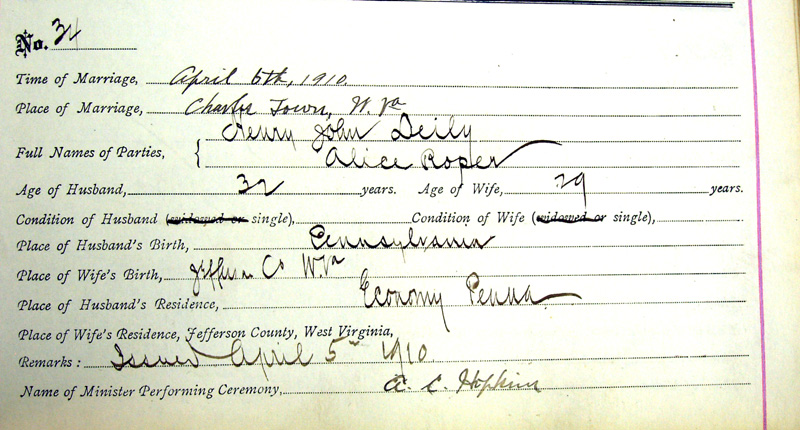 No. 34
Time of Marriage, April 6th, 1910.
Place of Marriage, Charles Town, W. Va
Henry John Deily
Full Names of Parties, {
Alice Roper
Age of Husband, 32 years. Age of Wife, 29 years.
Condition of Husband (widowed or single), Condition of Wife (widowed or single),
Place of Husband's Birth, Pennsylvania
Place of Wife's Birth, Jefferson Co W. Va
Place of Husband's Residence, Economy Penna
Place of Wife's Residence, Jefferson County, West Virginia,
Remarks : Issued April 5th 1910
Name of Minister Performing Ceremony, A. C. Hopkins